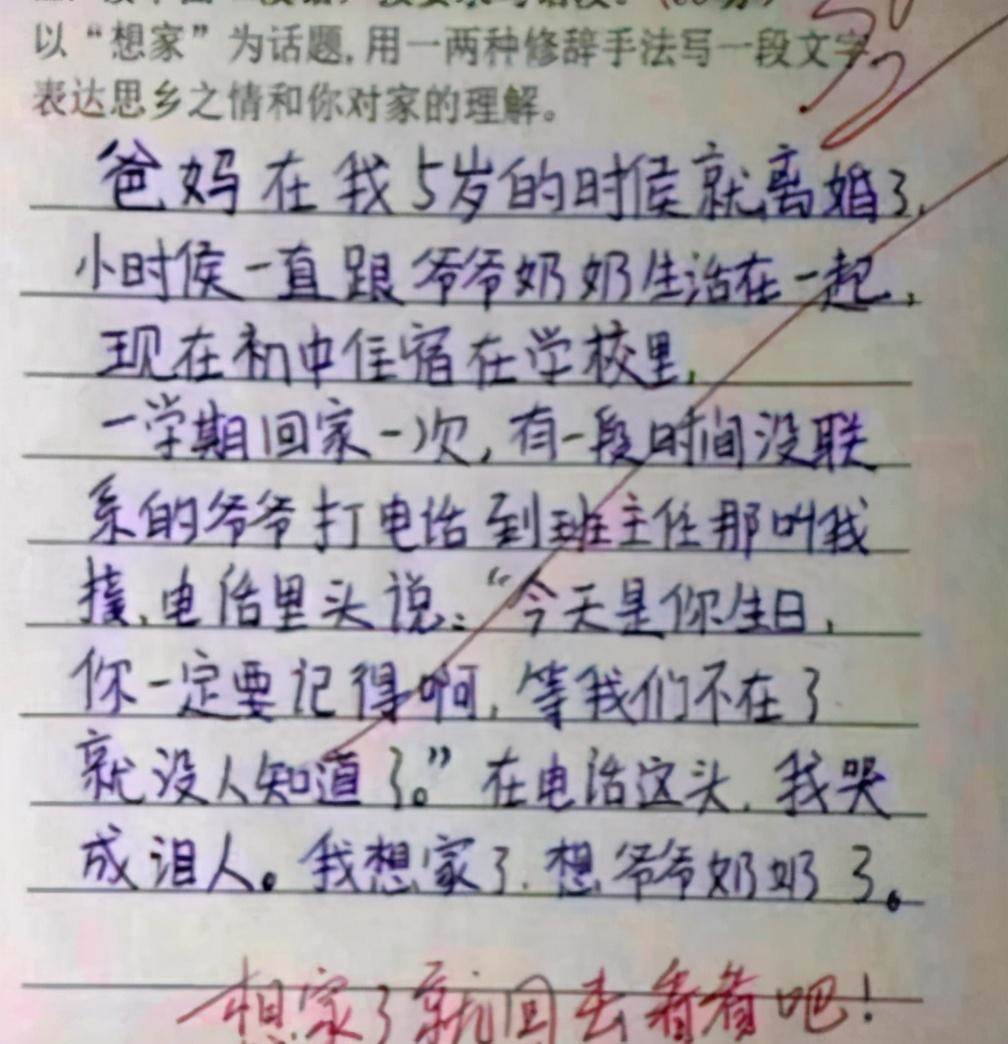 以“想家”为话题,用一两种修辞手法写一段文字
表达思乡之情和你对家的理解。
爸妈在我5岁的时候就离婚了,
小时候一直跟爷爷奶奶生活在一起,
现在初中住宿在学校里,
一学期回家一次,有一段时间没联
系的爷爷打电话到班主任那叫我
接,电话里头说:“今天是你生日,
你一定要记得啊,等我们不在了
就没人知道了。”在电话这头,我哭
成泪人。我想家了,想爷爷奶奶了。
想家了就回去看看吧!